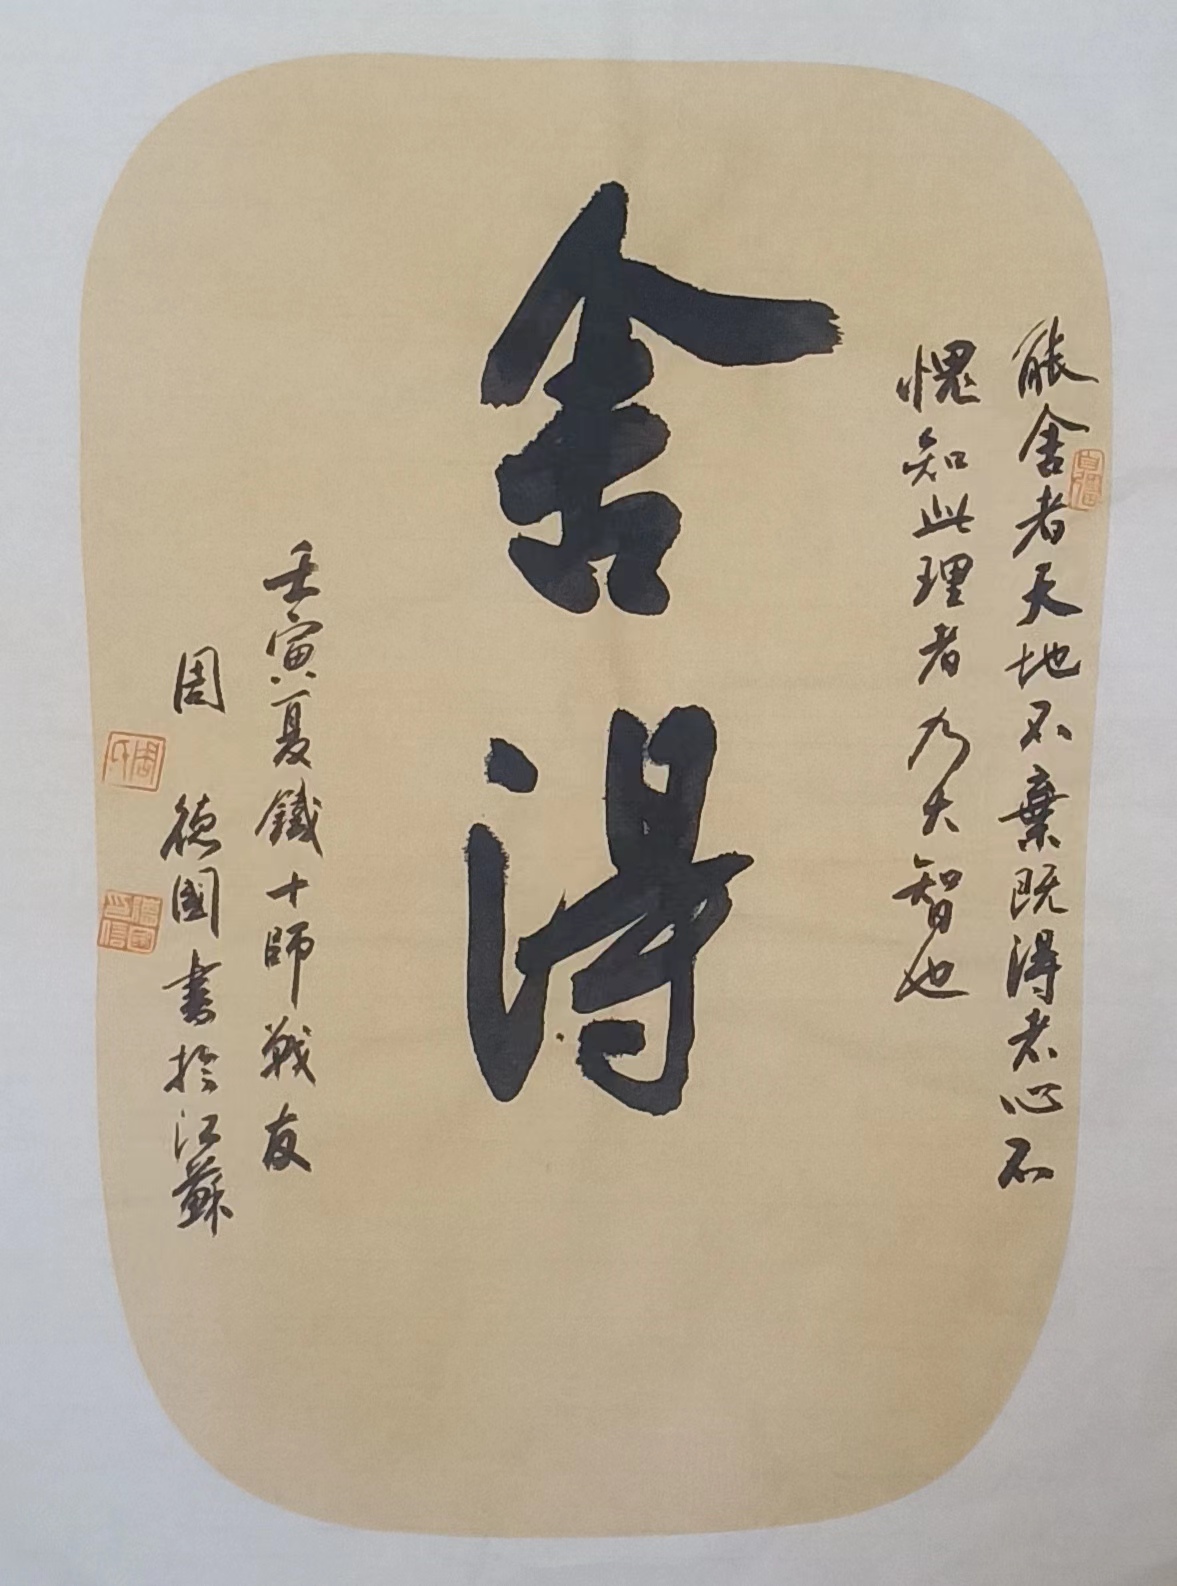 能舍者天地不棄既得者心不
愧知此理者乃大智也
舍得
壬寅夏鐵十師戰友
周德國書於江蘇
周氏
德國印信